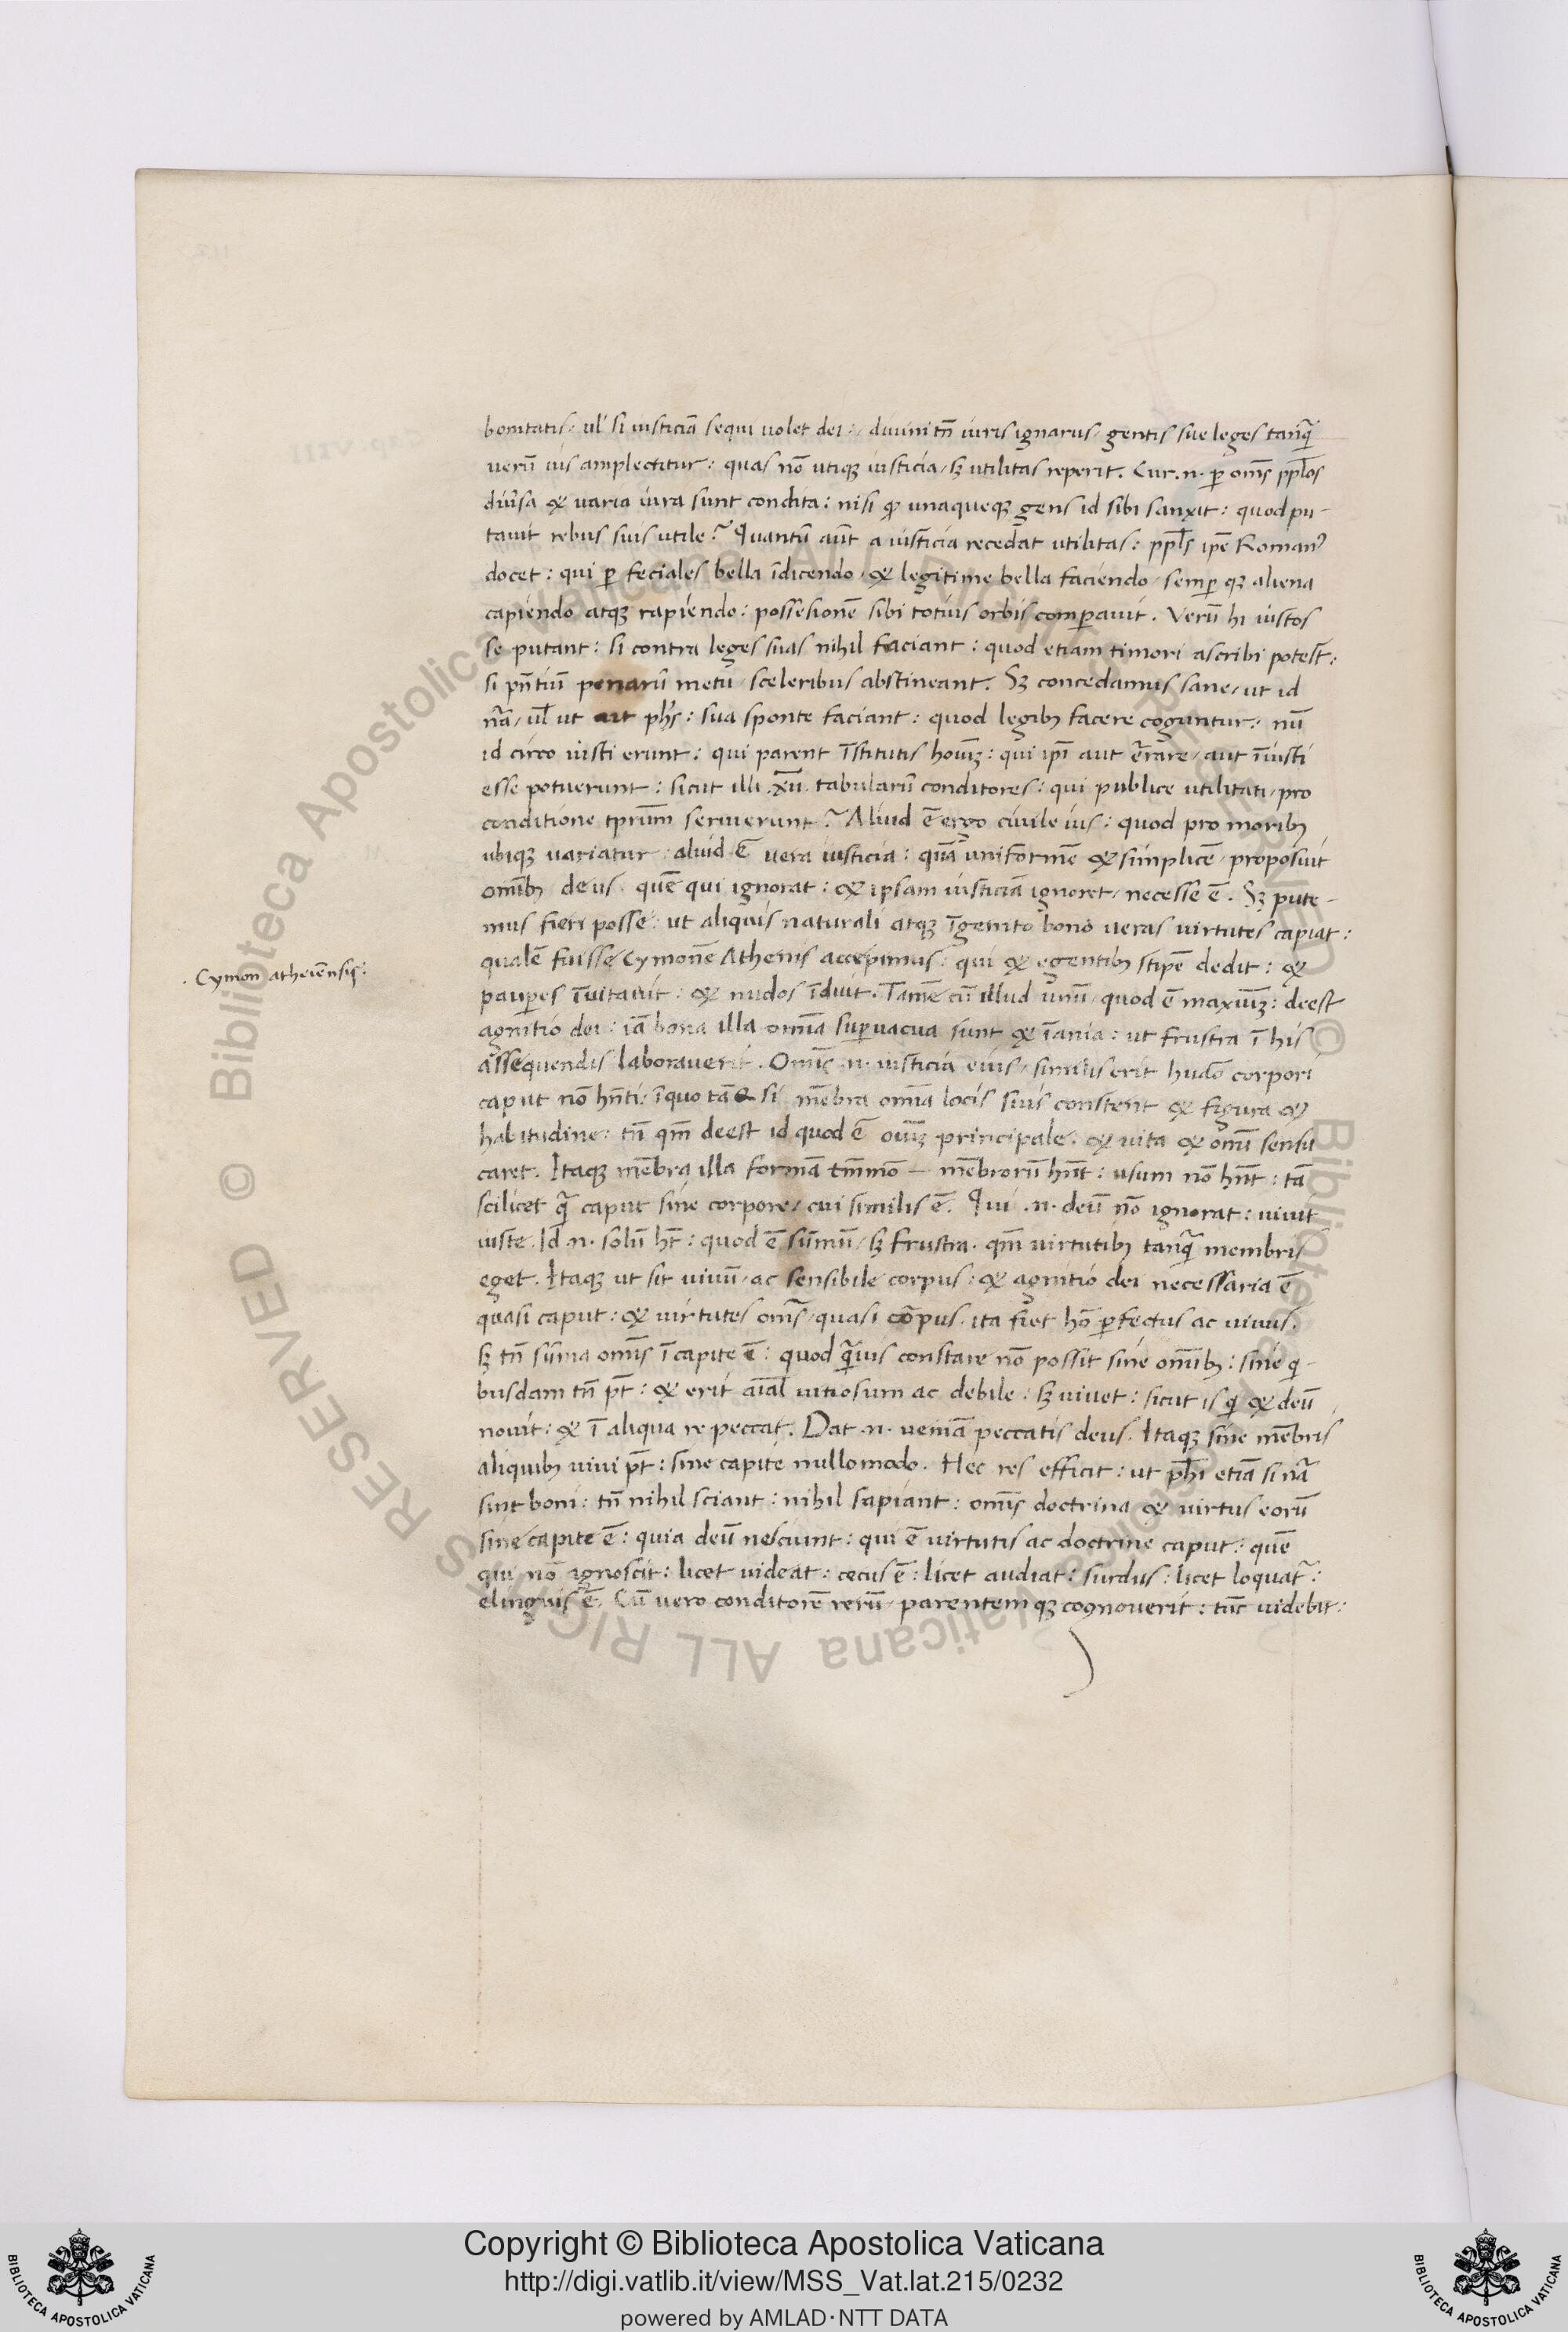 bonitatis: ul' si iusticiā sequi uolet dei: diuini tn̄ iuris ignarus, gentis sue leges tanq̄
uerū ius amplectitur: quas nō utiq; iusticia, sꝫ utilitas reperit. Cur .n. ꝑ om̄s pp̄los
diu̾sa & uaria iura sunt condita: nisi ꝙ unaqueq; gens id sibi sanxit: quod pu-
tauit rebus suis utile? Quantū aūt a iusticia recedat utilitas: pp̄ls ip̄e Roman᾽
docet: qui ꝑ feciales bella īdicendo, & legitime bella faciendo, semꝑ qꝫ aliena
capiendo atqꝫ rapiendo: possesionē sibi totius orbis comꝑauit. Verū hi iustos
se putant: si contra leges suas nihil faciant: quod etiam timori ascribi potest:
si pn̄tiū penarū metu, sceleribus abstineant. Sꝫ concedamus sane, ut id
nā, ul̄ ut ait ph̄s: sua sponte faciant: quod legibꝫ facere coguntur: nū
id circo iusti erunt: qui parent īstitutis houīꝫ: qui ip̄i aut errare, aut īiusti
esse potuerunt: sicut illi .xii. tabularū conditores: qui publice utilitati, pro
conditione tp̄rum seruierunt? Aliud ē ergo ciuile ius: quod pro moribꝫ
ubiqꝫ uariatur: aliud ē uera iusticia: quā uniformē & simplicē, proposuit
omībꝫ deus. quē qui ignorat: & ipsam iusticiā ignoret, necesse ē. Sꝫ pute-
mus fieri posse: ut aliquis naturali atqꝫ īgenito bono ueras uirtutes capiat:
qualē fuisse Cymonē Athenis accepimus: qui & egentibꝫ stipē dedit: &
pauꝑes īuitauit: & nudos īduit. Tamē cū illud unū, quod ē maxiūꝫ: deest
agnitio dei: iā bona illa omīa suꝑuacua sunt & īania: ut frustra ī his
assequendis laborauerit. Omīs .n. iusticia eius, similis erit huāo corpori
caput nō hn̄ti: ī quo tā & si mēbra omīa locis suis constent & figura &
habitudine: tn̄ qm̄ deest id quod ē ouīꝫ principale: & uita & omī sensu
caret. Itaqꝫ mēbra illa formā tm̄mō — mēbrorū hn̄t: usum nō hn̄t: tā
scilicet q̄ caput sine corpore, cui similis ē. Qui .n. deū nō ignorat: uiuit
iuste. Id .n. solū ht̄: quod ē sūmū, sꝫ frustra. qm̄ uirtutibꝫ tanq̄ membris
eget. Itaqꝫ ut sit uiuū, ac sensibile corpus: & agnitio dei necessaria ē
quasi caput: & uirtutes om̄s, quasi corpus. ita fiet hō ꝑfectus ac uiuus.
sꝫ tn̄ sūma omīs ī capite ē: quod q̄uis constare nō possit sine omībꝫ: sine qi-
busdam tn̄ pt̄: & erit aīal uitiosum ac debile: sꝫ uiuet: sicut is qi & deū
nouit: & ī aliqua re peccat. Dat .n. ueniā peccatis deus. Itaqꝫ sine mēbris
aliquibꝫ uiui pt̄: sine capite nullomodo. Hec res efficit: ut ph̄i etiā si nā
sint boni: tn̄ nihil sciant: nihil sapiant: omīs doctrina & uirtus eorū
sine capite ē: quia deū nesciunt: qui ē uirtutis ac doctrine caput: quē
qui nō agnoscit: licet uideat: cecus ē: licet audiat: surdus: licet loquat᾽:
elinguis ē. Cū uero conditorē rerū, parentem qꝫ cognouerit: tūc uidebit:
. Cymon atheiēnsis:
© Biblioteca Apostolica Vaticana ALL RIGHTS RESERVED
Copyright © Biblioteca Apostolica Vaticana
http://digi.vatlib.it/view/MSS_Vat.lat.215/0232
powered by AMLAD·NTT DATA
BIBLIOTECA APOSTOLICA VATICANA
BIBLIOTECA APOSTOLICA VATICANA